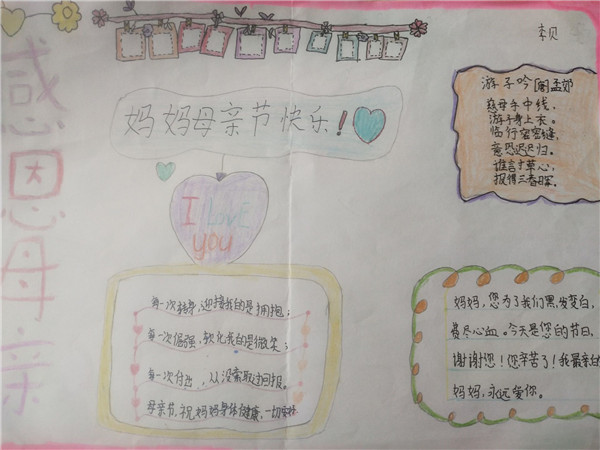 感恩母亲
妈妈母亲节快乐！
I LOVE
YOU
每一次转身,迎接我的是拥抱；
每一次倔强,软化我的是微笑；
每一次付出，从没索取过回报。
母亲节,祝妈妈身体健康,一切
游子吟 孟郊
慈母手中线，
游子身上衣。
临行密密缝，
意恐迟迟归。
谁言寸草心，
报得三春晖。
妈妈,您为了我们黑发变白,
费尽心血。今天是您的节日,
谢谢您！您辛苦了！我最亲的
妈妈,永远爱你。